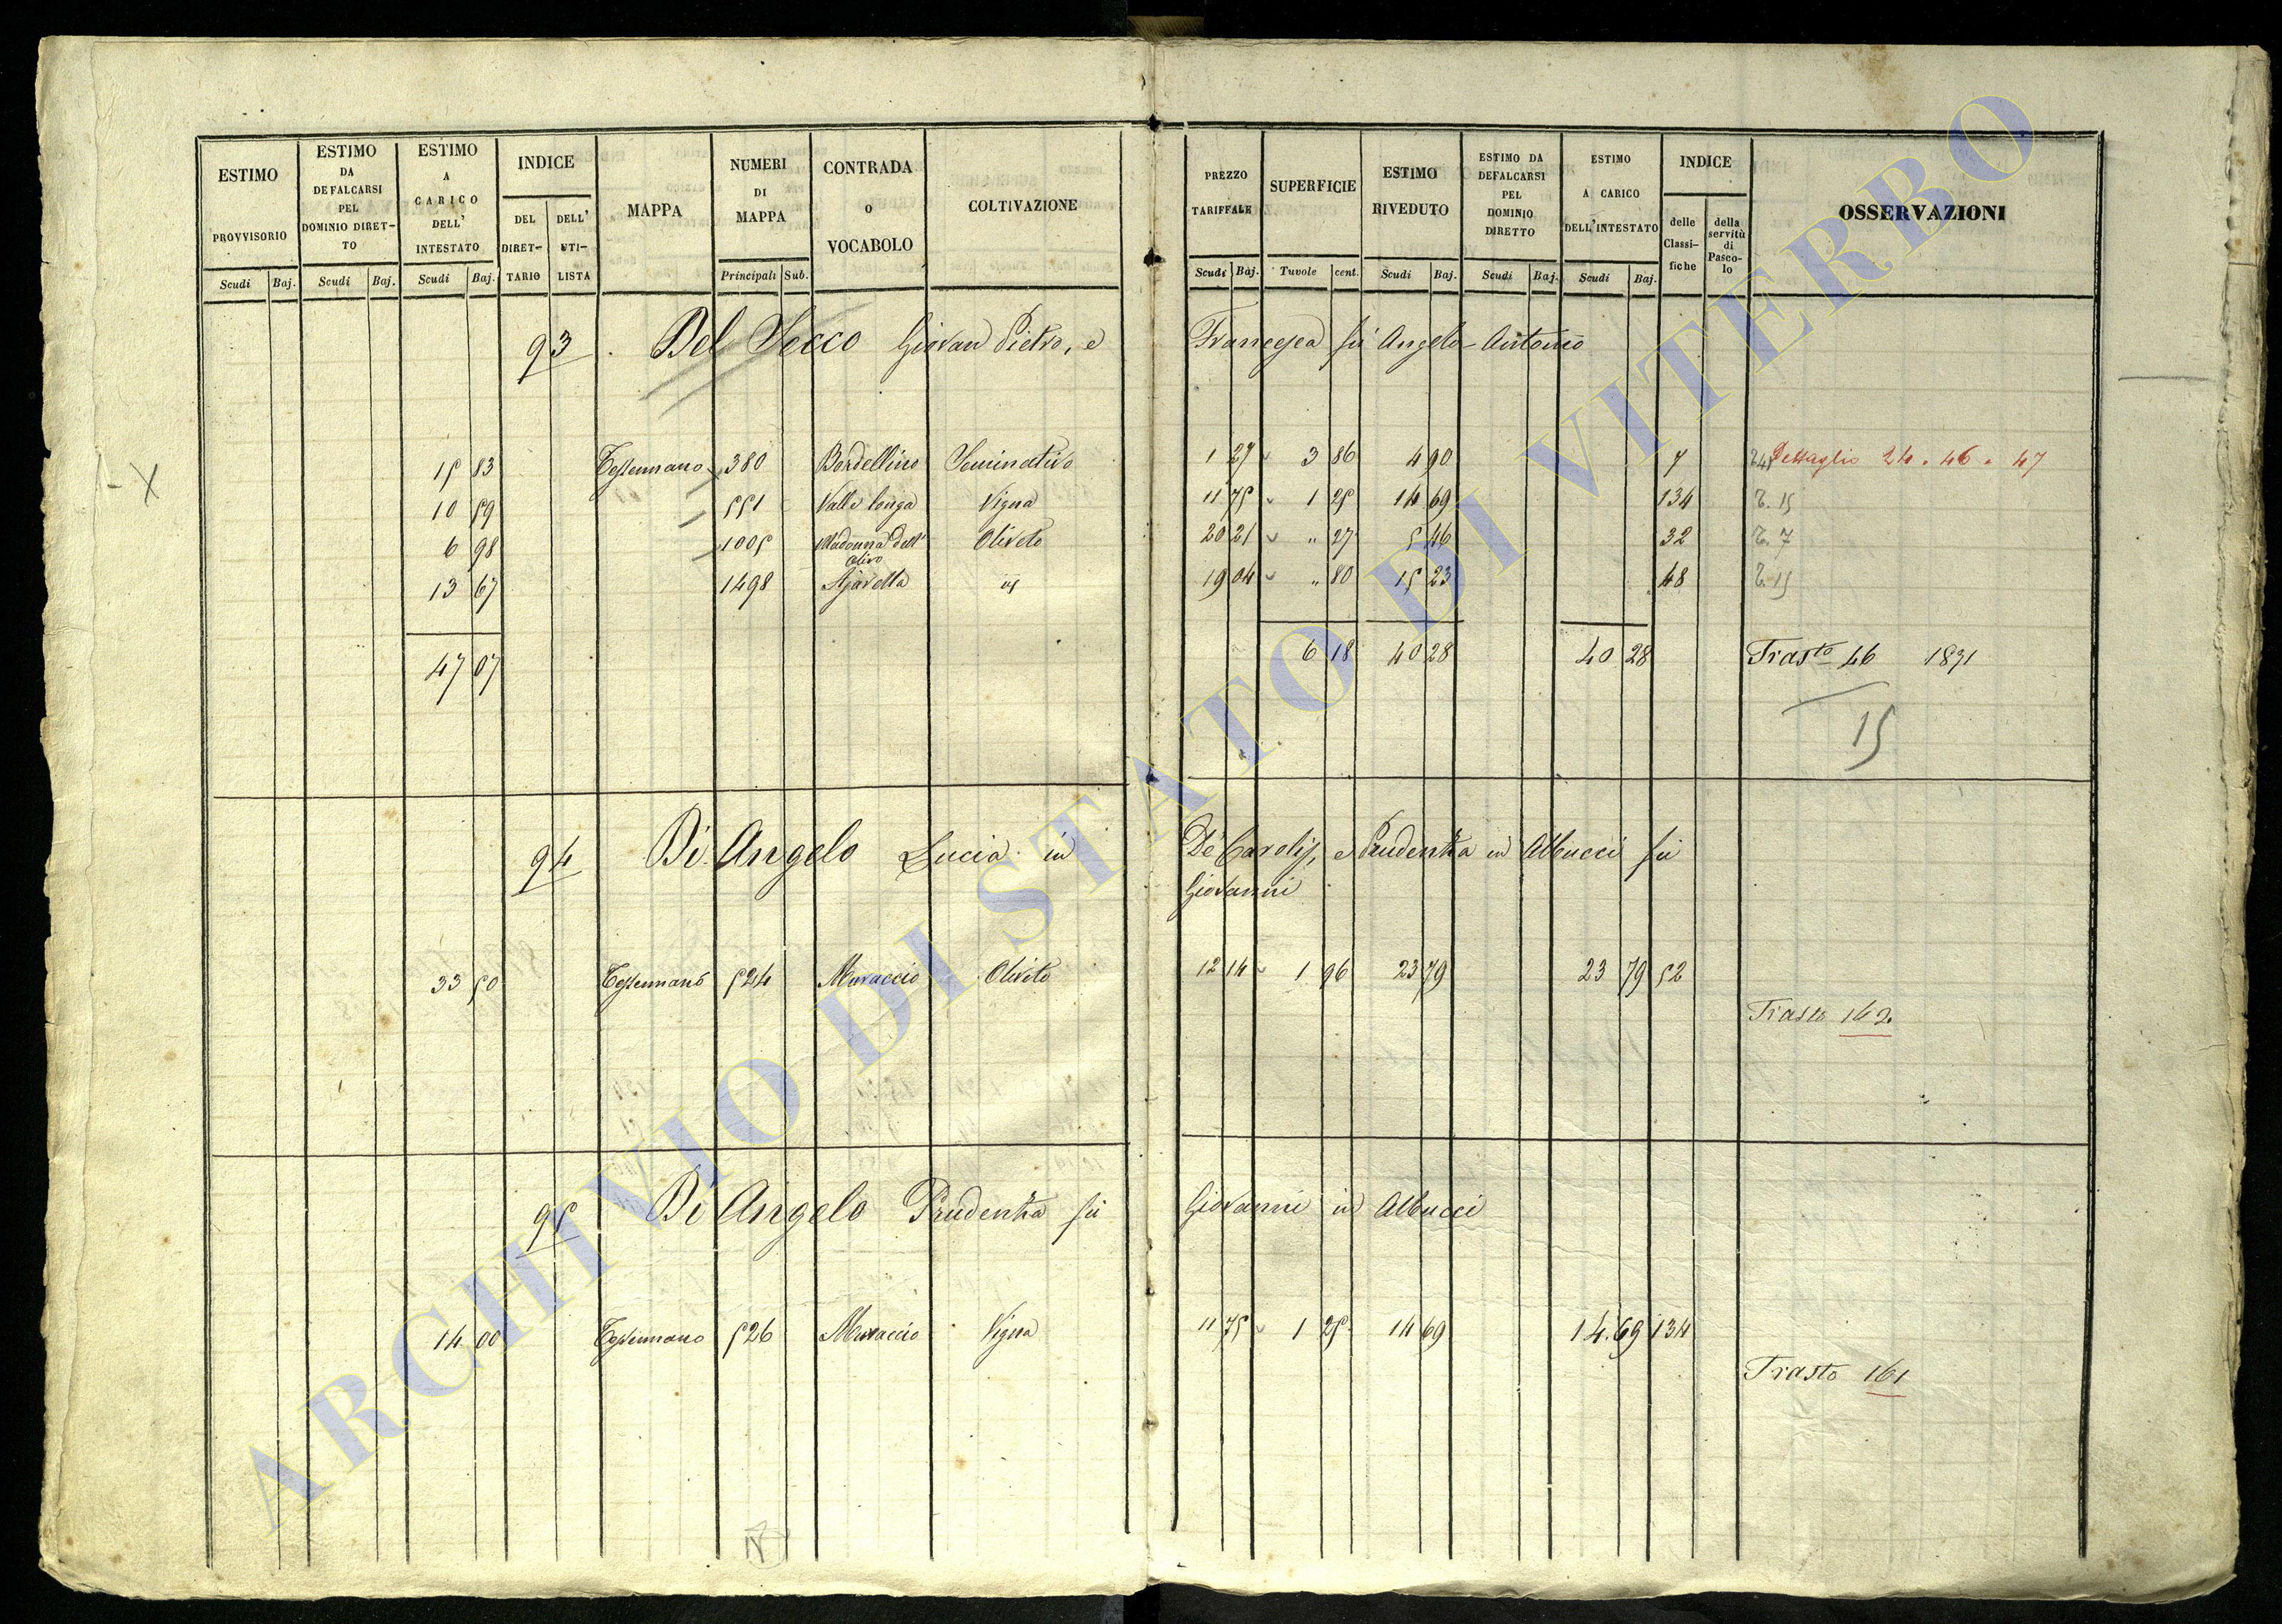 ESTIMO PROVVISORIO Scudi Baj.
ESTIMO DA DEFALCARSI PEL DOMINIO DIRETTO Scudi Baj.
ESTIMO A CARICO DELL' INTESTATO Scudi Baj.
INDICE DEL DIRETTARIO DELL' UTILISTA
MAPPA
NUMERI DI MAPPA Principali Sub.
CONTRADA O VOCABOLO
COLTIVAZIONE
PREZZO TARIFFALE Scudi Baj.
SUPERFICIE Tavole cent.
ESTIMO RIVEDUTO Scudi Baj.
ESTIMO DA DEFALCARSI PEL DOMINIO DIRETTO Scudi Baj.
ESTIMO A CARICO DELL'INTESTATO Scudi Baj.
INDICE delle Classifiche della servitù di Pascolo
OSSERVAZIONI
93 . Del Secco Giovan Pietro, e Francesca fu Angelo-Antonio
15 83 Tessennano 380 Bordellino Seminativo 1 27 3 86 4 90 7 Dettaglio 24 . 46 . 47
X
10 59 551 Valle longa Vigna 11 75 1 25 14 69 134 T. 15
6 98 1005 Madonna dell' Olivo Oliveto 20 21 " 27 5 46 32 T. 7
13 67 1498 Ajaretta id 19 04 " 80 15 23 48 T. 15
47 07 6 18 40 28 40 28 Trasto 46 1871
15
94 Di Angelo Lucia in De Carolis, e Prudenza in Albucci fu
Giovanni
33 50 Tessennano 524 Muraccio Oliveto 12 14 1 96 23 79 23 79 52
Trasto 162
95 Di Angelo Prudenza fu Giovanni in Albucci
14 00 Tessennano 526 Muraccio Vigna 11 75 1 25 14 69 14.69 134
Trasto 161
ARCHIVIO DI STATO DI VITERBO